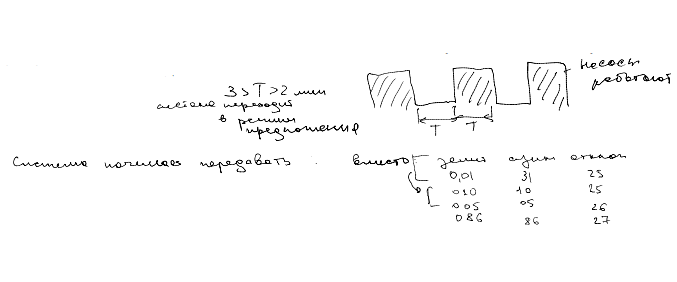 насосы
работают
3 > T > 2 мин
система переходит
в режим
предложения
T T
Система начинает передавать вместо
0,01 31 25
010 10 25
005 05 26
086 86 27